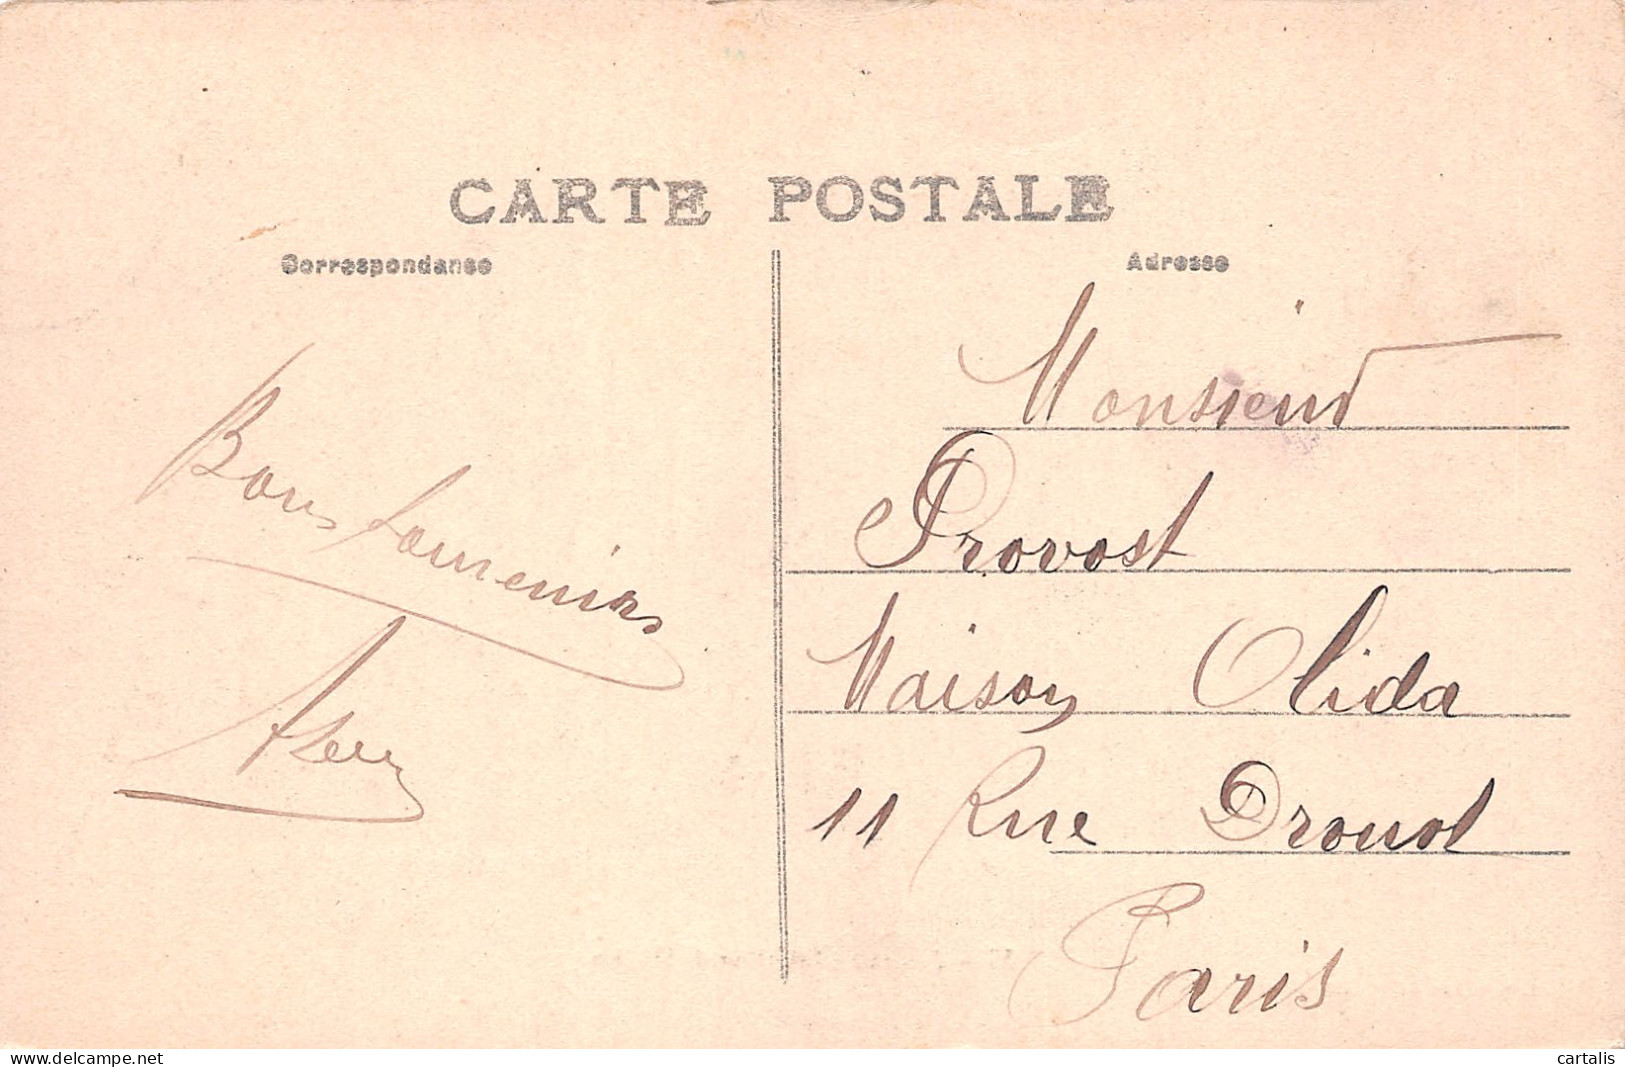 CARTE POSTALE
Correspondance
Adresse
Bons Souvenirs
Monsieur
Provost
Maison Olida
11 Rue Drouot
Paris
www.delcampe.net
cartalis